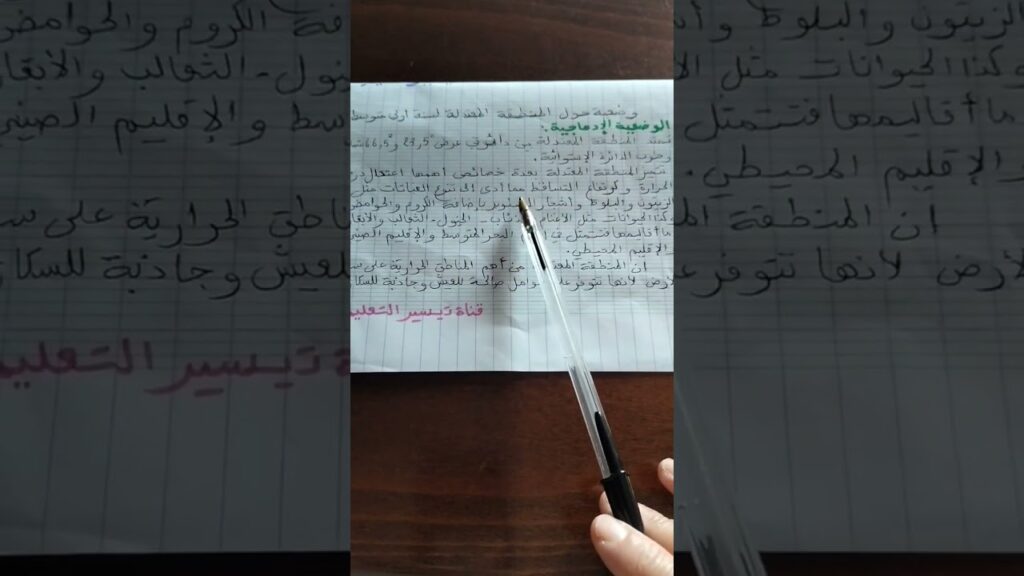 وضعية حول المنطقة المعتدلة لسنة أولى متوسط
الوضعية الإدماجية:
تمتد المنطقة المعتدلة من دائرتي عرض 23,5° و 66,5°
وجنوب الدائرة الإستوائية.
تتميز المنطقة المعتدلة بعدة خصائص أهمها اعتدال
الحرارة وارتفاع التساقط مما أدى إلى تنوع النباتات مثل
الزيتون والبلوط وأشجار بإضافة الكروم والحوامض
وكذا الحيوانات مثل الأغنام الخيول - الثعالب والأبقار
ما أقاليمها فتتمثل في البحر المتوسط والإقليم الصيني
والإقليم المحيطي.
ان المنطقة المعتدلة من أهم المناطق الحرارية على
الأرض لأنها تتوفر على عوامل صالحة للعيش وجاذبة للسكان
قناة تيسير التعليم